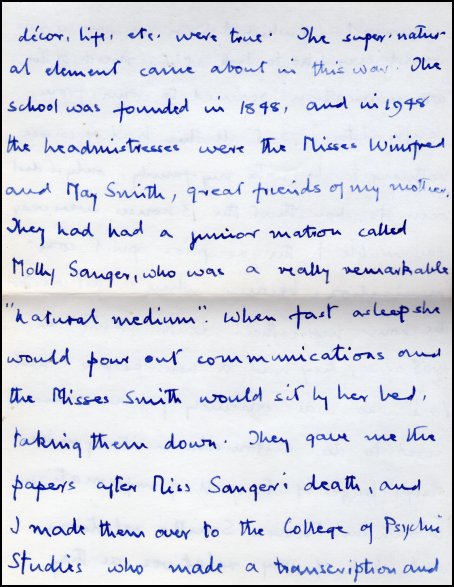 décor, life, etc. were true. The super-natur-
al element came about in this way. The
school was founded in 1848, and in 1948
the headmistresses were the Misses Winifred
and May Smith, great friends of my mother.
They had had a junior matron called
Molly Sanger, who was a really remarkable
"natural medium". When fast asleep she
would pour out communications and
the Misses Smith would sit by her bed,
taking them down. They gave me the
papers after Miss Sanger's death, and
I made them over to the College of Psychic
Studies who made a transcription and